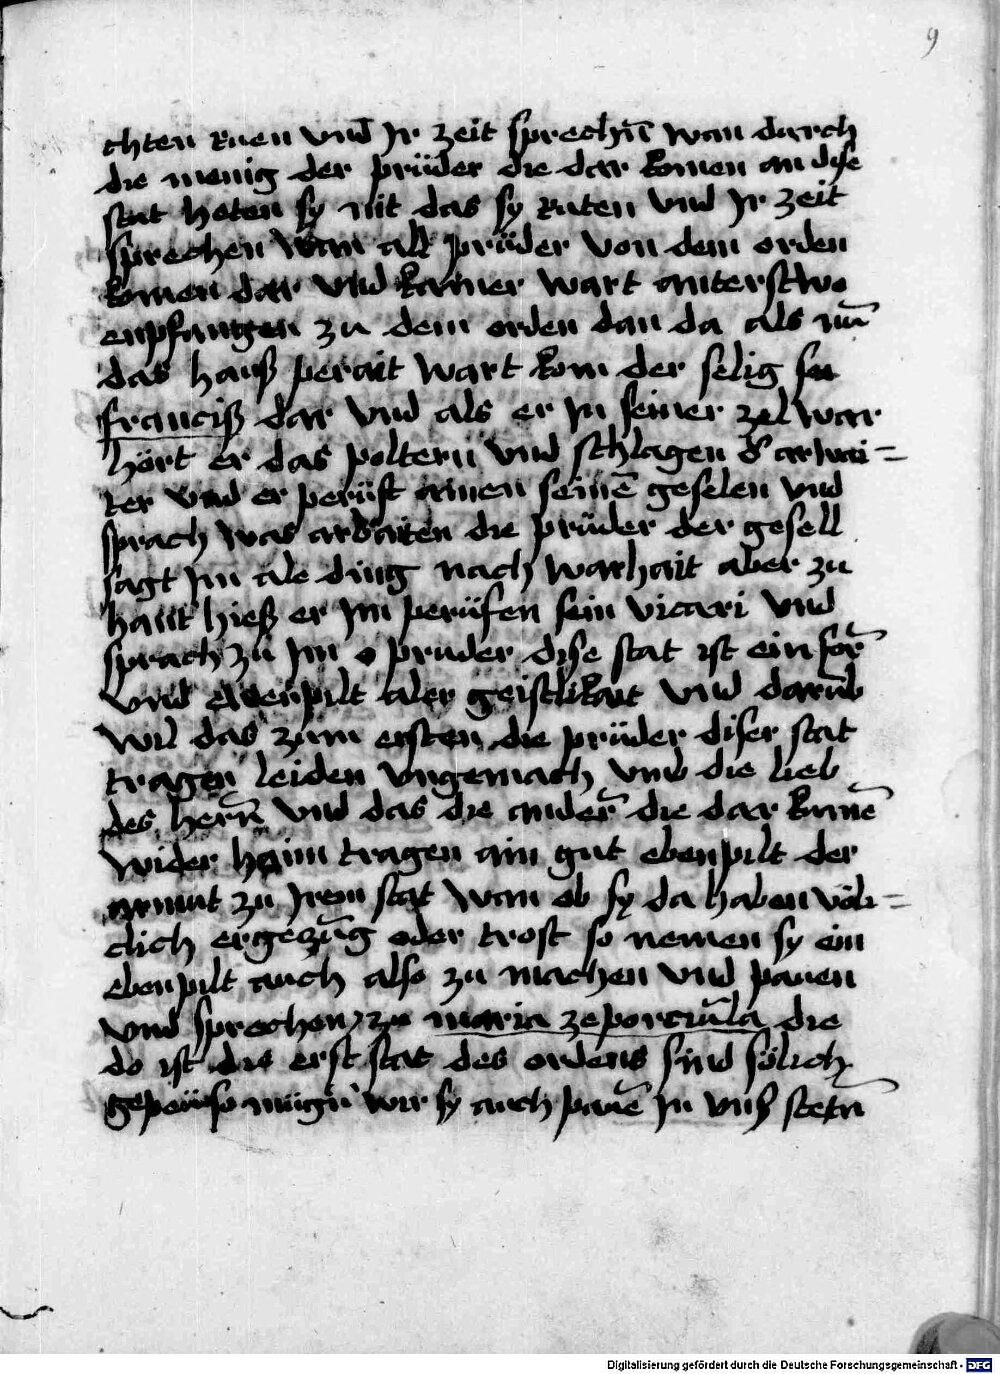 9
chten ruen vnd Jr zeit sprechn̄ wan durch
die menig der prüder die dar komen an dise
stat heten sy nit das sy ruten vnd Jr zeit
sprechen wan all prüder von dem orden
komen dar vnd kainer wart anterstwo
enpfangen zu dem orden dan da als nū
das hauß perait wart kom der selig
franciß dar vnd als er Jn seiner zel war
hört er das poltern vnd schlagen d̕ arwai=
ter vnd er perüft ainen seinē geselen vnd
sprach was arbaiten die prüder der gesell
sagt Jm ale ding nach warhait aber zu
hant hieß er Jm perüfen sein vicari vnd
sprach zu Jm o pruder dise stat ist ein for̄
vnd ebenpilt aler geistlikait vnd darūb
wil das zum ersten die prüder diser stat
tragen leiden vngemach vmb die lieb
des herñ vnd das die ander̄ die dar kumē
wider haim tragen ain gut ebenpilt der
armut zu Jrem stat wan ob sy da haben völi=
clich ergezūg oder trost so nemen sy ein
ebenpilt auch also zu machen vnd pauen
vnd sprechen zu maria zeporciūla die
do ist die erst stat des ordens sind sölich
gepeüß so mügn̄ wir sy auch pauē Jn vnß̃ stetñ
Digitalisierung gefördert durch die Deutsche Forschungsgemeinschaft - DFG